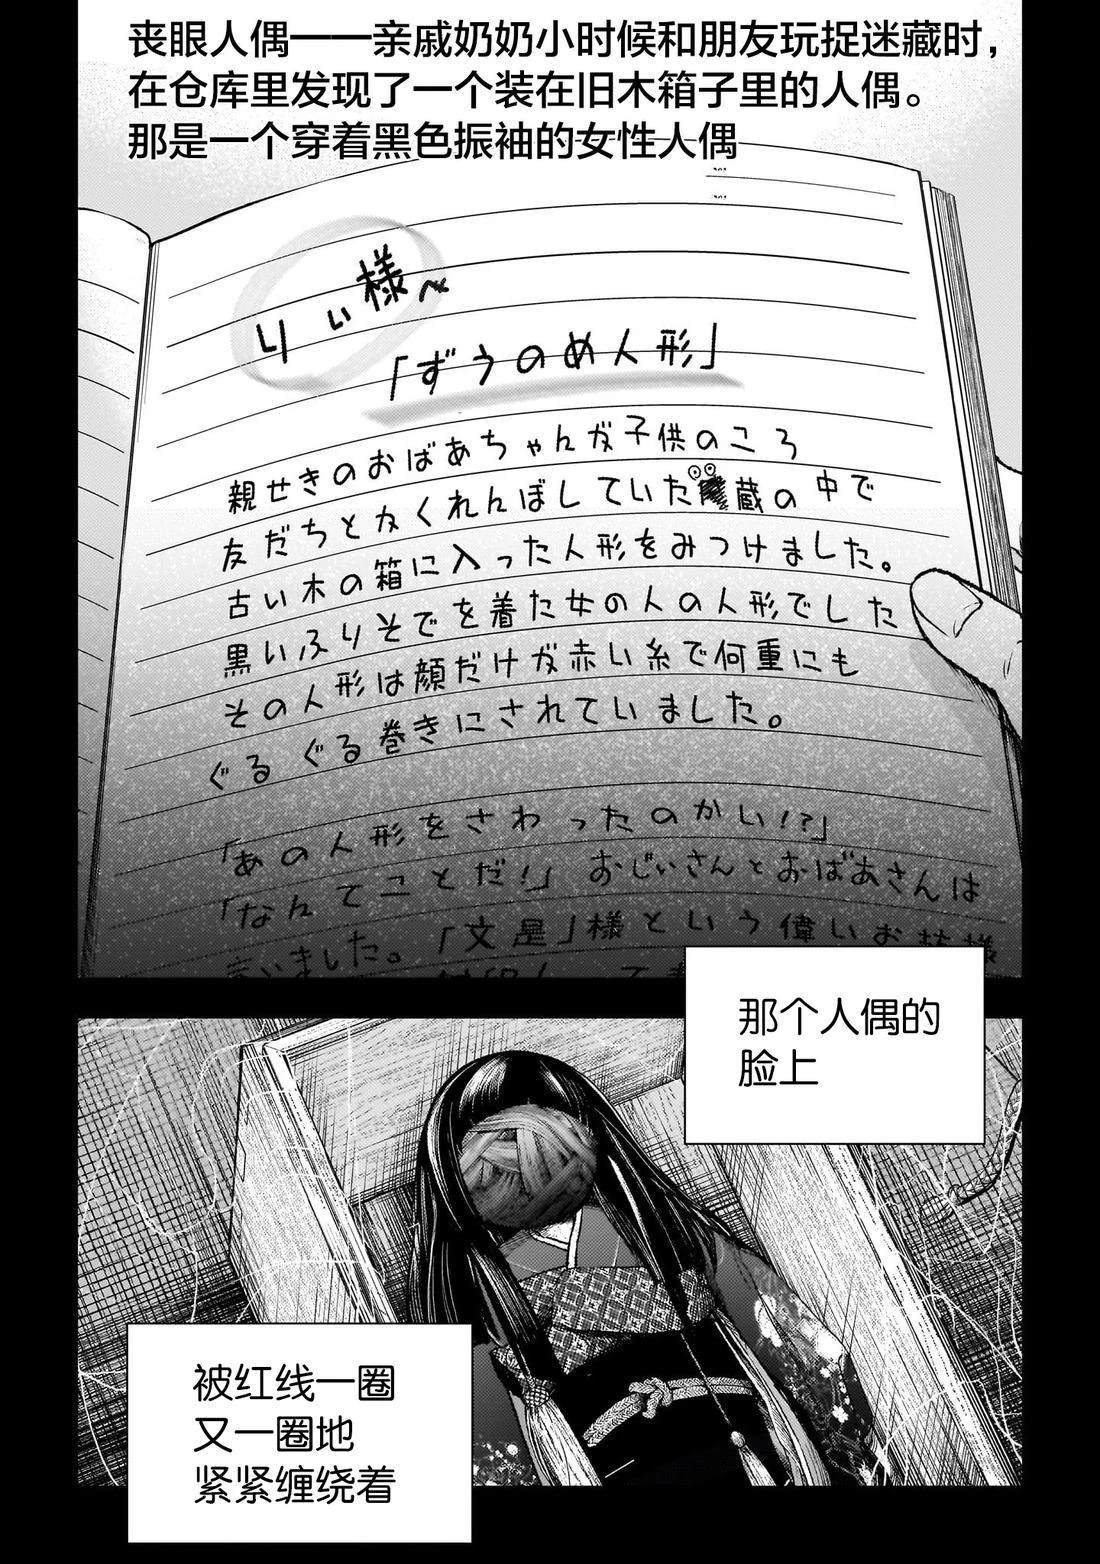 丧眼人偶——亲戚奶奶小时候和朋友玩捉迷藏时，
在仓库里发现了一个装在旧木箱子里的人偶。
那是一个穿着黑色振袖的女性人偶
りぃ様へ
「ずうのめ人形」
親せきのおばあちゃんが子供のころ
友だちとかくれんぼしていた蔵の中で
古い木の箱に入った人形をみつけました。
黒いふりそでを着た女の人の人形でした
その人形は顔だけが赤い糸で何重にも
ぐるぐる巻きにされていました。
「あの人形をさわったのかい!?」
「なんてことだ!」おじいさんとおばあさんは
言いました。「文是」様という偉いお
那个人偶的
脸上
被红线一圈
又一圈地
紧紧缠绕着